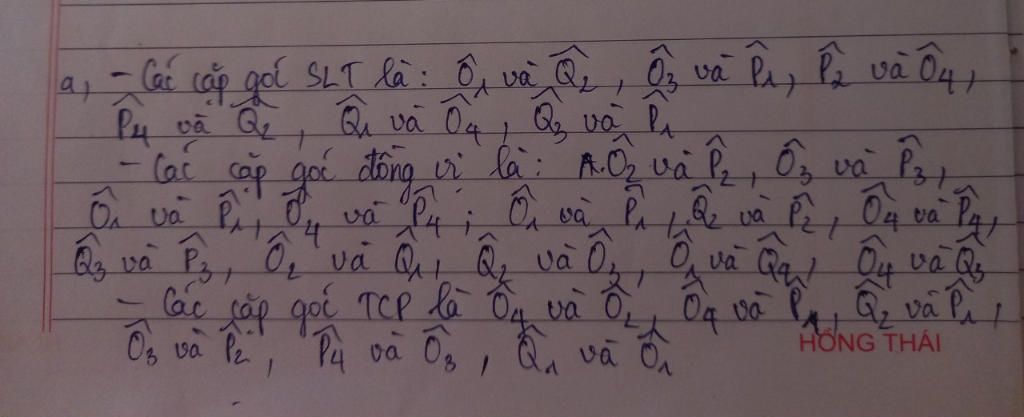 a, - Các cặp góc SLT là: Ô1 và Q̂2, Ô3 và P̂1, P̂2 và Ô4,
P̂4 và Q̂2, Q̂1 và Ô4, Q̂3 và P̂1
- Các cặp góc đồng vị là: A.Ô2 và P̂2, Ô3 và P̂3,
Ô1 và P̂1, Ô4 và P̂4; Ô1 và P̂1, Q̂2 và P̂2, Ô4 và P̂4,
Q̂3 và P̂3, Ô2 và Q̂1, Q̂2 và Ô3, Ô1 và Q̂4, Ô4 và Q̂3
- Các cặp góc TCP là Ô4 và Ô2, Ô4 và P̂1, Q̂2 và P̂1,
Ô3 và P̂2, P̂4 và Ô3, Q̂1 và Ô1
HỒNG THÁI